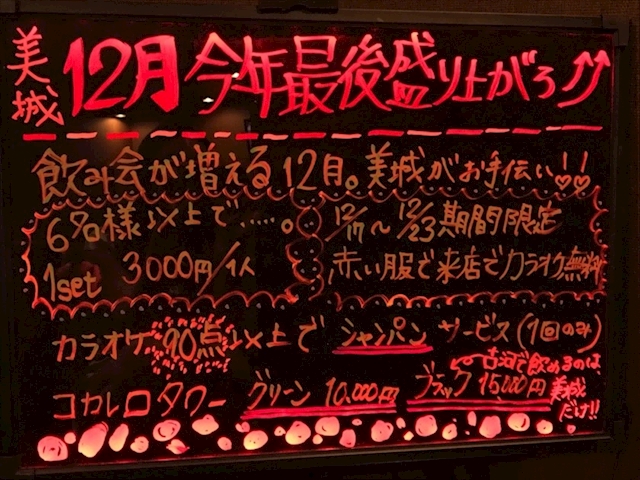 美城 12月 今年最後盛り上がろう↑↑
飲み会が増える12月。美城がお手伝い!!
6名様以上で.....。
1set 3000円/1人
12/17〜12/23期間限定
赤い服で来店でカラオケ無料
カラオケ90点以上でシャンパンサービス(1回のみ)
コカレロタワー グリーン10,000円 ブラック15,000円
古河で飲めるのは美城だけ!!